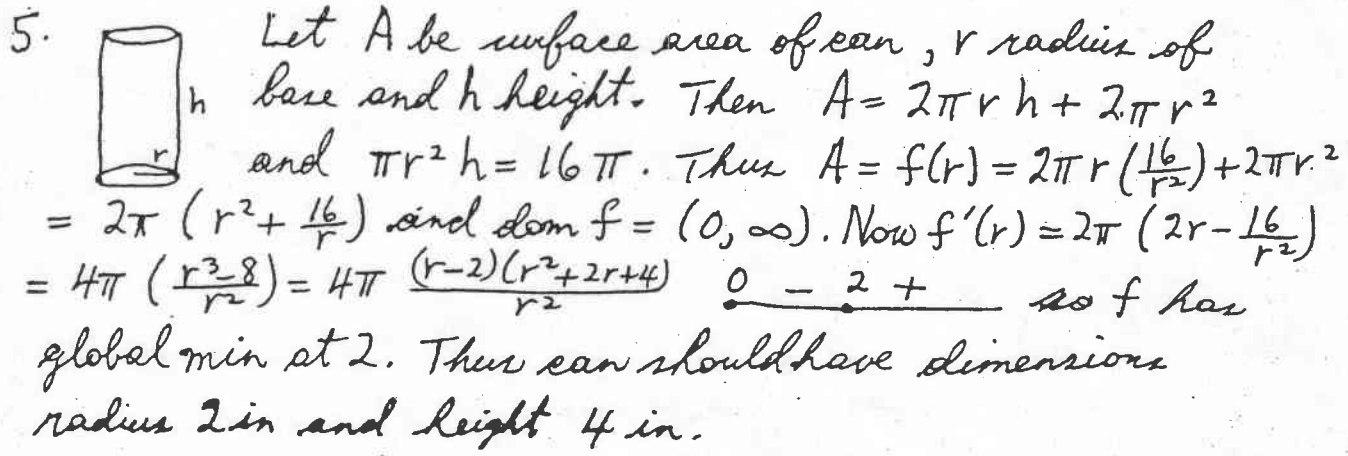 5. Let A be surface area of can, r radius of
h base and h height. Then A = 2πrh + 2πr²
r and πr²h = 16π. Thus A = f(r) = 2πr(16/r²) + 2πr²
= 2π (r² + 16/r) and dom f = (0, ∞). Now f'(r) = 2π (2r - 16/r²)
= 4π (r³-8/r²) = 4π (r-2)(r²+2r+4)/r² 0 - 2 + so f has
global min at 2. Thus can should have dimensions
radius 2 in and height 4 in.